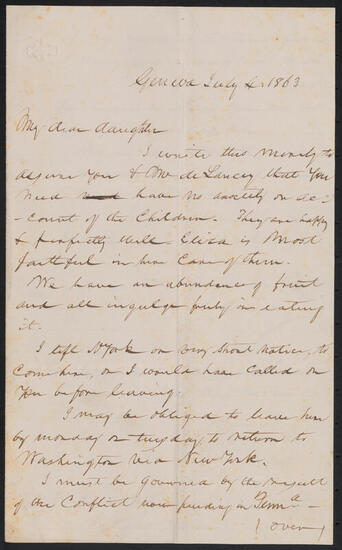 Geneva July 4. 1863
My dear daughter
I write this merely to
assure you & Mr de Lancey that you
need have no anxiety on ac-
-count of the Children. They are happy
& perfectly well. Eliza is most
faithful in her care of them.
We have an abundance of fruit
and all indulge freely in eating
it.
I left N York on very short notice, to
come here, or I would have called on
you before leaving.
I may be obliged to leave here
by monday or tuesday to return to
Washington via New York.
I must be governed by the result
of the Conflict now pending in Penna -
(over)